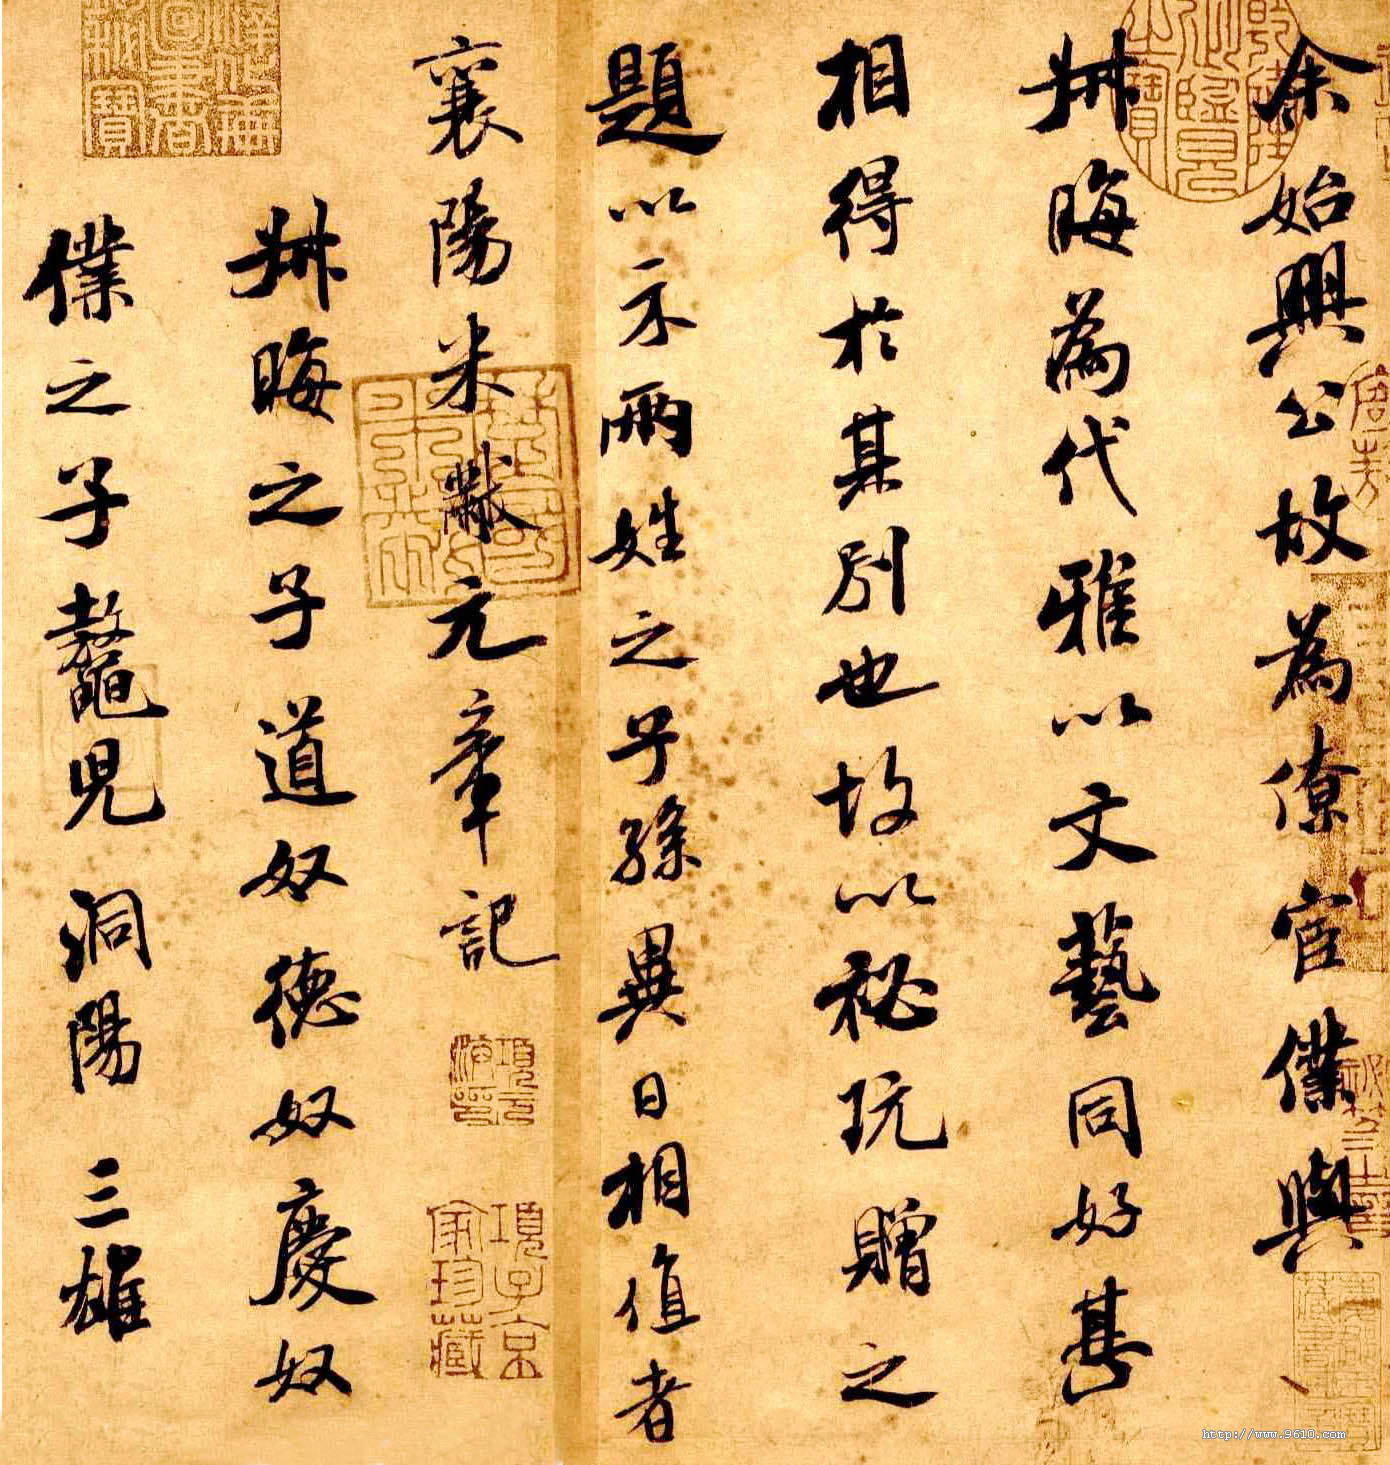 余始興公故為僚宦僕與
叔晦為代雅以文藝同好甚
相得於其別也故以秘玩贈之
題以示兩姓之子孫異日相值者
襄陽米黻元章記
叔晦之子道奴德奴慶奴
僕之子鼇兒洞陽三雄
項元汴印
項子京家珍藏
http://www.9610.com